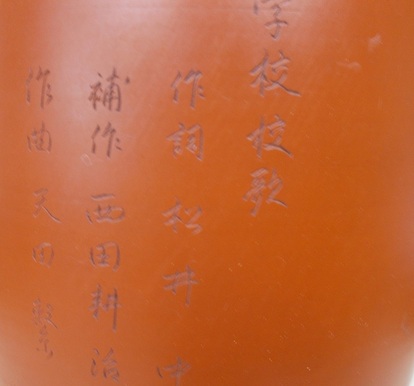 学校校歌
作詞 松井
補作 西田耕治
作曲 天田